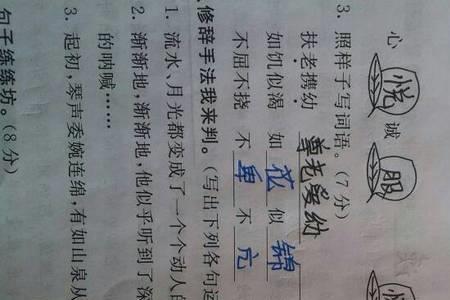 心悦诚服
3. 照样子写词语。(7分)
扶老携幼 尊老爱幼
如饥似渴 如花似锦
不屈不挠 不卑不亢
修辞手法我来判。(写出下列各句运
1. 流水、月光都变成了一个个动人的
2. 渐渐地,渐渐地,他似乎听到了深
的呐喊……
3. 起初,琴声委婉连绵,有如山泉从
句子练练坊。(8分)